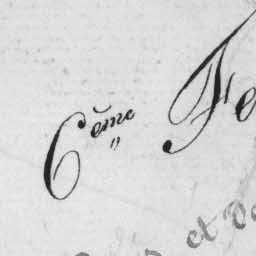 6ème Fe
et de